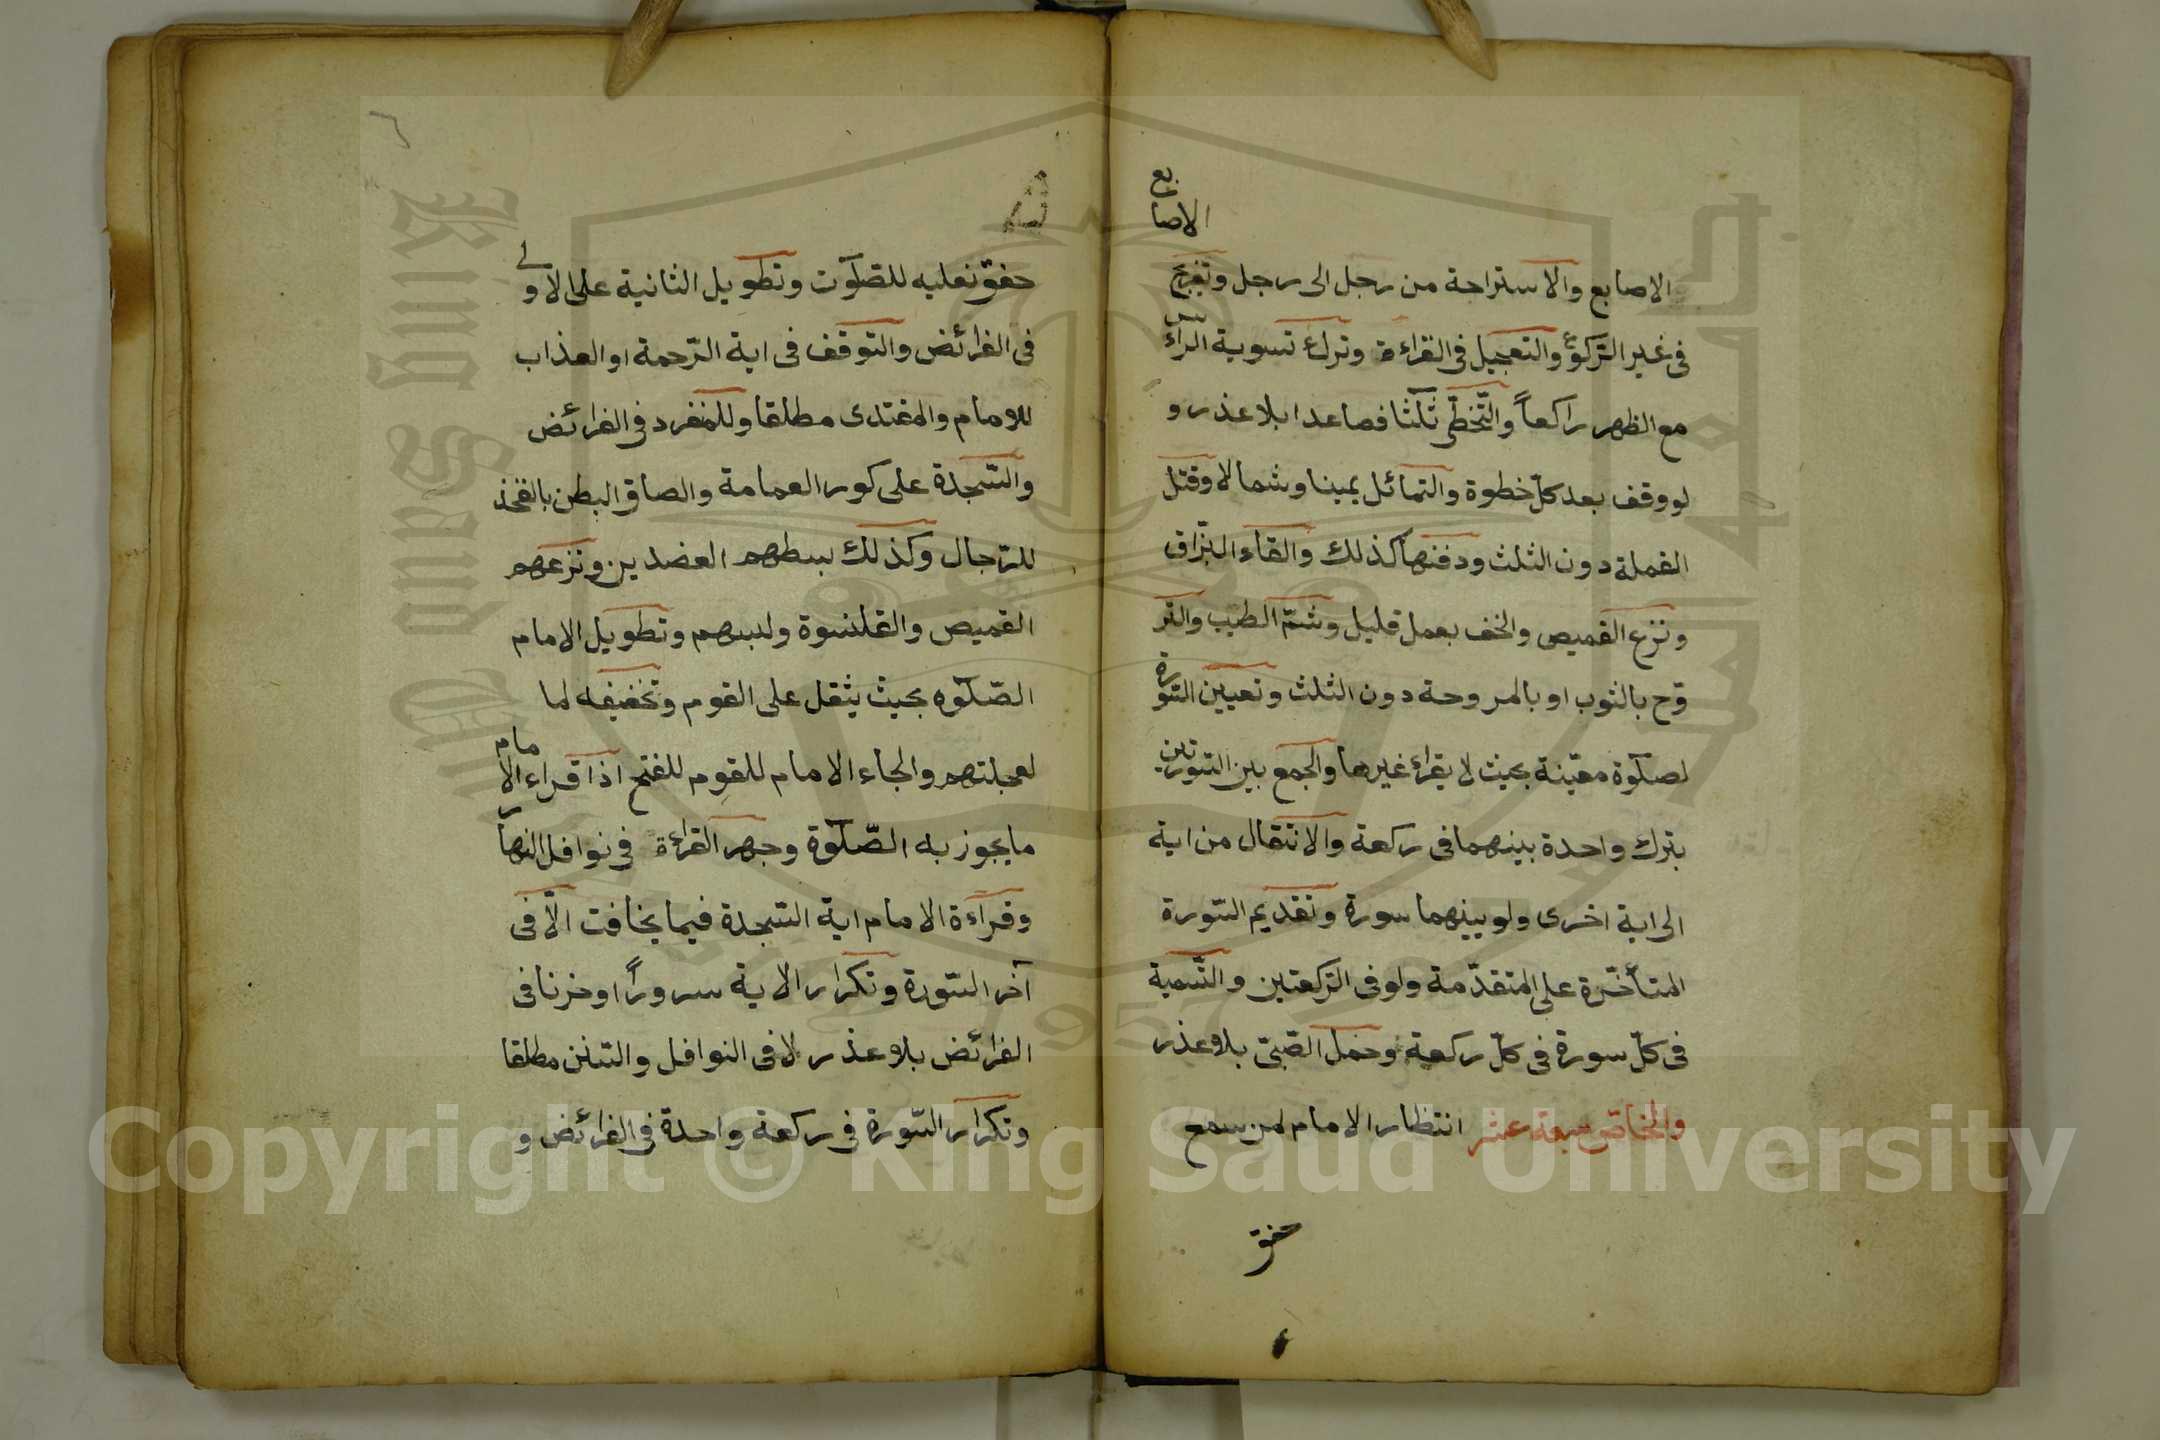 الاصابع
الاصابع والاستراحة من رجل الى رجل وتفريج
فى غير الرّكوع والتعجيل فى القراءة وترك تسوية الرأس
مع الظهر راكعاً والتّخطّى ثلثا فصاعدا بلا عذر و
لو وقف بعد كلّ خطوة والتمائل يمينا وشمالا وقتل
القملة دون الثلث ودفنها كذلك والقاء البزّاق
ونزع القميص والخف بعمل قليل وشمّ الطيب والتر
وّح بالثوب او بالمروحة دون الثلث وتعيين السّورة
لصلوة معيّنة بحيث لا يقراء غيرها والجمع بين السّورتين
بترك واحدة بينهما فى ركعة والانتقال من اية
الى اية اخرى ولو بينهما سورة وتقديم السّورة
المتأخّرة على المتقدّمة ولو فى الرّكعتين والتّسمية
فى كلّ سورة فى كلّ ركعة وحمل الصّبىّ بلا عذر
والخاص سبعة عشر انتظار الامام لمن سمع
خفق
خفق نعليه للصّلوت وتطويل الثانية على الاولى
فى الفرائض والتوقف فى اية الرّحمة او العذاب
للامام والمقتدى مطلقا وللمنفرد فى الفرائض
والسّجدة على كور العمامة والصاق البطن بالفخذ
للرّجال وكذلك بسطهم العضدين ونزعهم
القميص والقلنسوة ولبسهم وتطويل الامام
الصّلوه بحيث يثقل على القوم وتخفيفه لما
لعجلتهم والجاء الامام للقوم للفتح اذا قراء الامام
ما يجوز به الصّلوة وجهر القراءة فى نوافل النهار
وقراءة الامام اية السّجدة فيما يخافت الّا فى
آخر السّورة وتكرار الاية سروراً او حزنا فى
الفرائض بلا عذر لا فى النوافل والسّنن مطلقا
وتكرار السّورة فى ركعة واحدة فى الفرائض و
Copyright © King Saud University